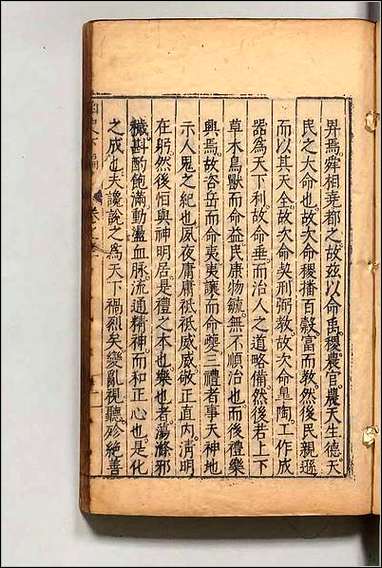 昇焉舜相堯都之故玆以命禹稷農官農天生德天
民之大命也故次命稷播百穀富而教然後民親遜
而以其天全故次命契刑弼教故次命皐陶工作成
器爲天下利故命垂而治人之道略備然後若上下
草木鳥獸而命益民康物毓無不順治也而後禮樂
興焉故咨岳而命夷夷讓而命夔三禮者事天神地
示人鬼之紀也夙夜庸庸祗祗威威敬正直内淸明
在躬然後怕與神明居是禮之本也樂也者蕩滌邪
穢斟酌飽滿動盪血脉流通精神而和正心也是化
之成也夫讒説之爲天下禍烈矣變亂視聽殄絶善